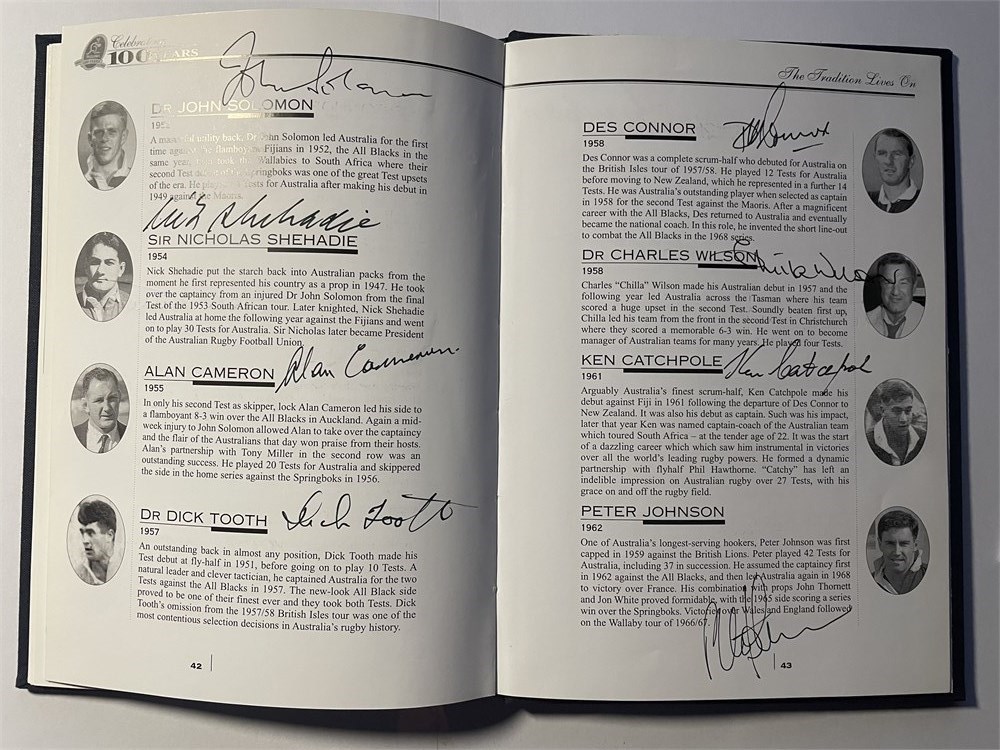 Celebrating
100 YEARS
John Solomon
DR JOHN SOLOMON
utility back, Dr John Solomon led Australia for the first
time against the flamboyant Fijians in 1952, the All Blacks in the
same year, took the Wallabies to South Africa where their
second Test of the Springboks was one of the great Test upsets
of the era. He played Tests for Australia after making his debut in
1949 against the Maoris.
Nick Shehadie
SIR NICHOLAS SHEHADIE
1954
Nick Shehadie put the starch back into Australian packs from the
moment he first represented his country as a prop in 1947. He took
over the captaincy from an injured Dr John Solomon from the final
Test of the 1953 South African tour. Later knighted, Nick Shehadie
led Australia at home the following year against the Fijians and went
on to play 30 Tests for Australia. Sir Nicholas later became President
of the Australian Rugby Football Union.
ALAN CAMERON Alan Cameron.
1955
In only his second Test as skipper, lock Alan Cameron led his side to
a flamboyant 8-3 win over the All Blacks in Auckland. Again a mid-
week injury to John Solomon allowed Alan to take over the captaincy
and the flair of the Australians that day won praise from their hosts.
Alan's partnership with Tony Miller in the second row was an
outstanding success. He played 20 Tests for Australia and skippered
the side in the home series against the Springboks in 1956.
DR DICK TOOTH Dick Tooth
1957
An outstanding back in almost any position, Dick Tooth made his
Test debut at fly-half in 1951, before going on to play 10 Tests. A
natural leader and clever tactician, he captained Australia for the two
Tests against All Blacks in 1957. The new-look All Black side
proved to be one of their finest ever and they took both Tests. Dick
Tooth's omission from the 1957/58 British Isles tour was one of the
most contentious selection decisions in Australia's rugby history.
42
The Tradition Lives On
DES CONNOR Des Connor
1958
Des Connor was a complete scrum-half who debuted for Australia on
the British Isles tour of 1957/58. He played 12 Tests for Australia
before moving to New Zealand, which he represented in a further 14
Tests. He was Australia's outstanding player when selected as captain
in 1958 for the second Test against the Maoris. After a magnificent
career with the All Blacks, Des returned to Australia and eventually
became the national coach. In this role, he invented the short line-out
to combat the All Blacks in the 1968 series.
DR CHARLES WILSON Chilla Wilson
1958
Charles “Chilla” Wilson made his Australian debut in 1957 and the
following year led Australia across the Tasman where his team
scored a huge upset in the second Test. Soundly beaten first up,
Chilla led his team from the front in the second Test in Christchurch
where they scored a memorable 6-3 win. He went on to become
manager of Australian teams for many years. He played four Tests.
KEN CATCHPOLE Ken Catchpole
1961
Arguably Australia's finest scrum-half, Ken Catchpole made his
debut against Fiji in 1961 following the departure of Des Connor to
New Zealand. It was also his debut as captain. Such was his impact,
later that year Ken was named captain-coach of the Australian team
which toured South Africa – at the tender age of 22. It was the start
of a dazzling career which which saw him instrumental in victories
over all the world's leading rugby powers. He formed a dynamic
partnership with flyhalf Phil Hawthorne. “Catchy” has left an
indelible impression on Australian rugby over 27 Tests, with his
grace on and off the rugby field.
PETER JOHNSON
1962
One of Australia's longest-serving hookers, Peter Johnson was first
capped in 1959 against the British Lions. Peter played 42 Tests for
Australia, including 37 in succession. He assumed the captaincy first
in 1962 against the All Blacks, and then led Australia again in 1968
to victory over France. His combination props John Thornett
and Jon White proved formidable, with the 1965 side scoring a series
win over the Springboks. Victories over Wales and England followed
on the Wallaby tour of 1966/67.
43